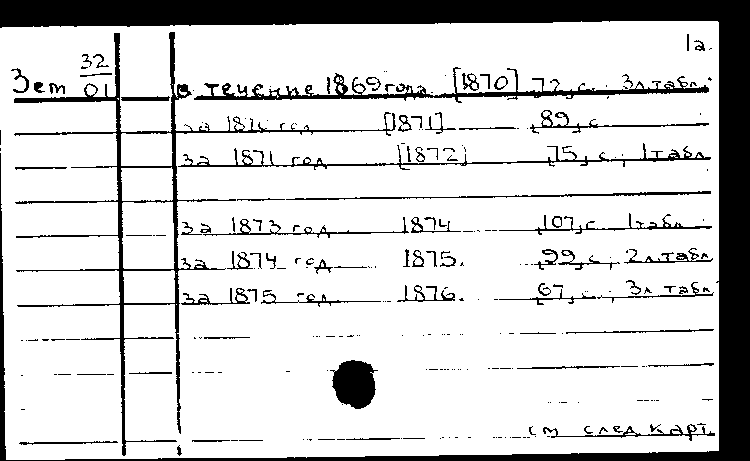 1а.
Зем 32/01 в течение 1869 года [1870] 72, с. 3л. табл.
за 1870 год [1871] 89, с
за 1871 год [1872] 75, с, 1 табл
за 1873 год 1874 107, с 1 табл
за 1874 год 1875. 99, с, 2л. табл
за 1875 год 1876. 67, с, 3л табл
см след карт.